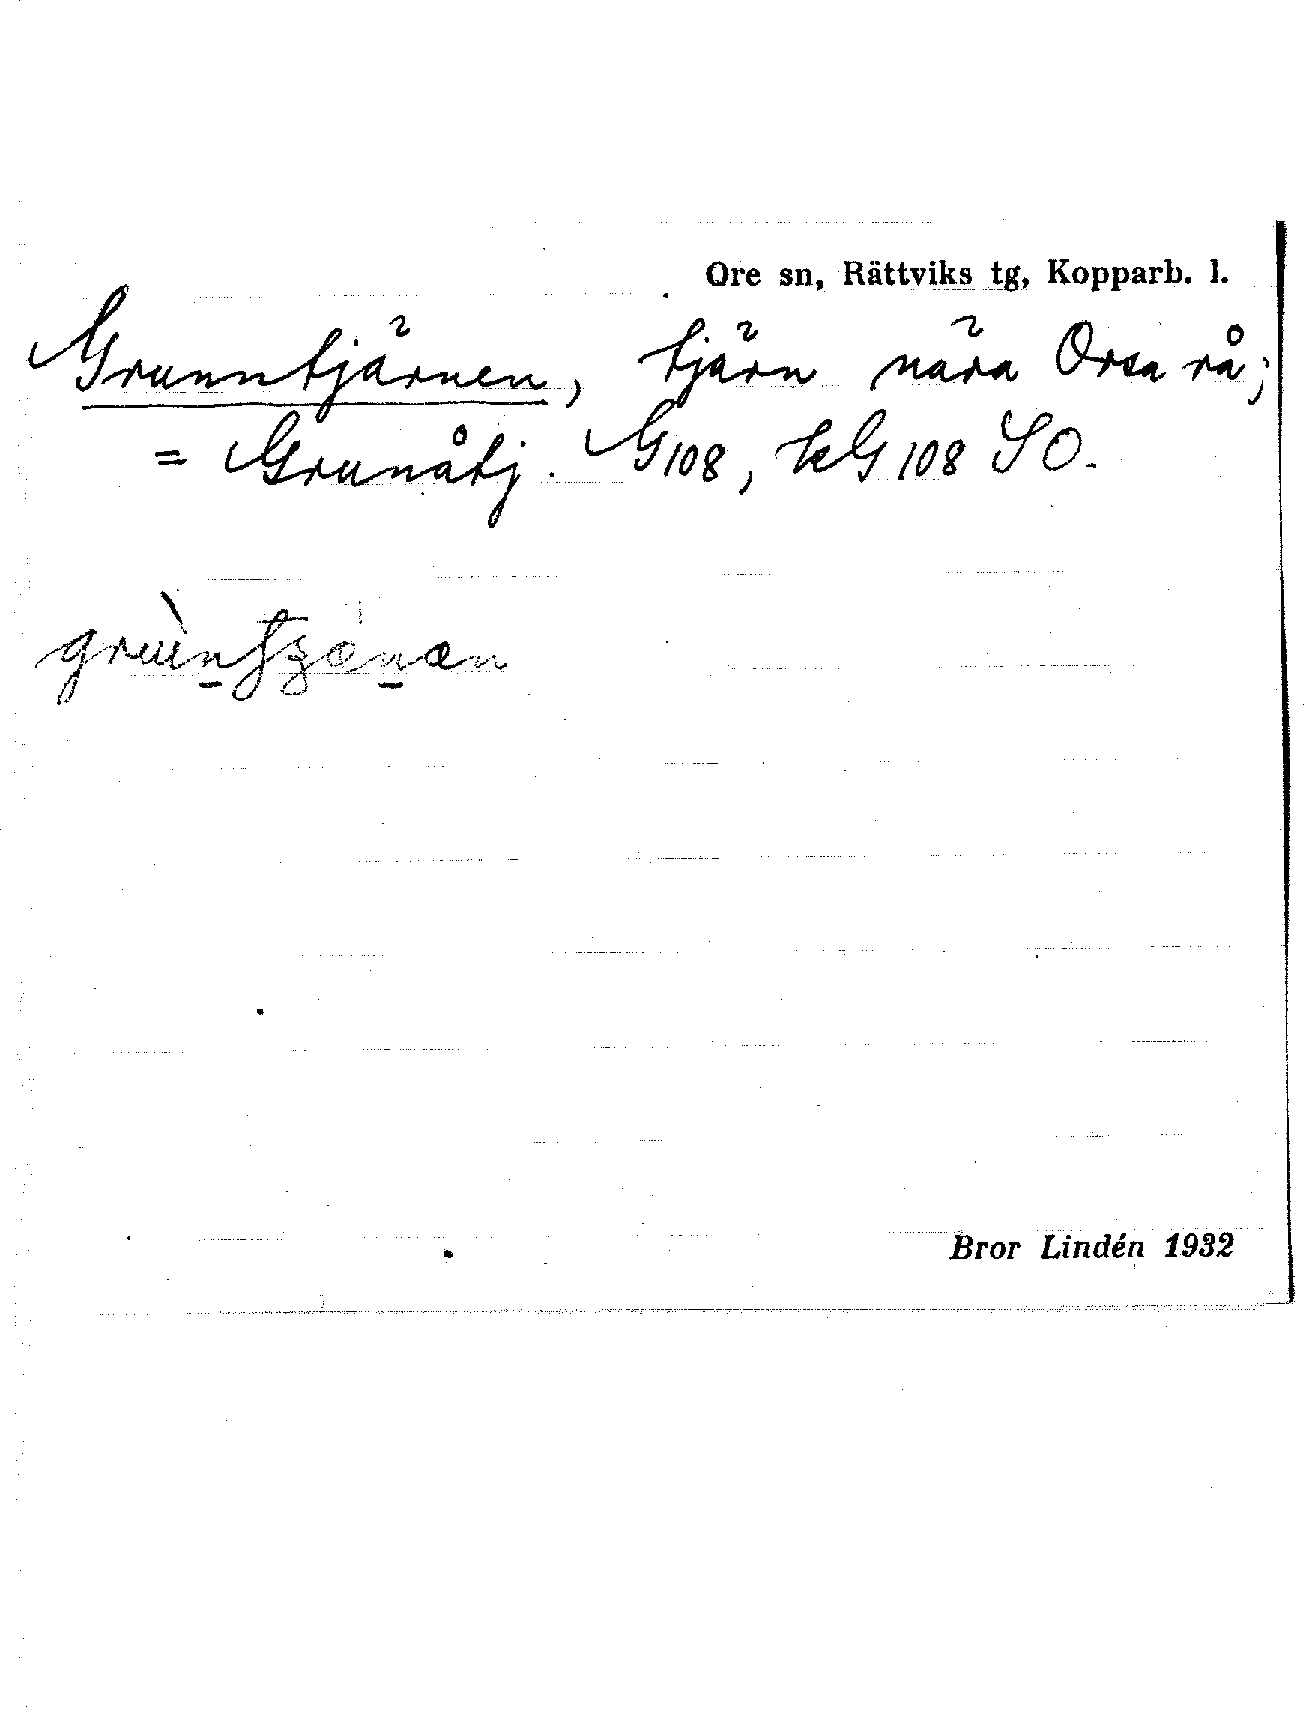 Ore sn, Rättviks tg, Kopparb. l.
Grunntjärnen, tjärn nära Orsa rå;
= Grunåtj. G108, kG 108 SO.
Bror Lindén 1932